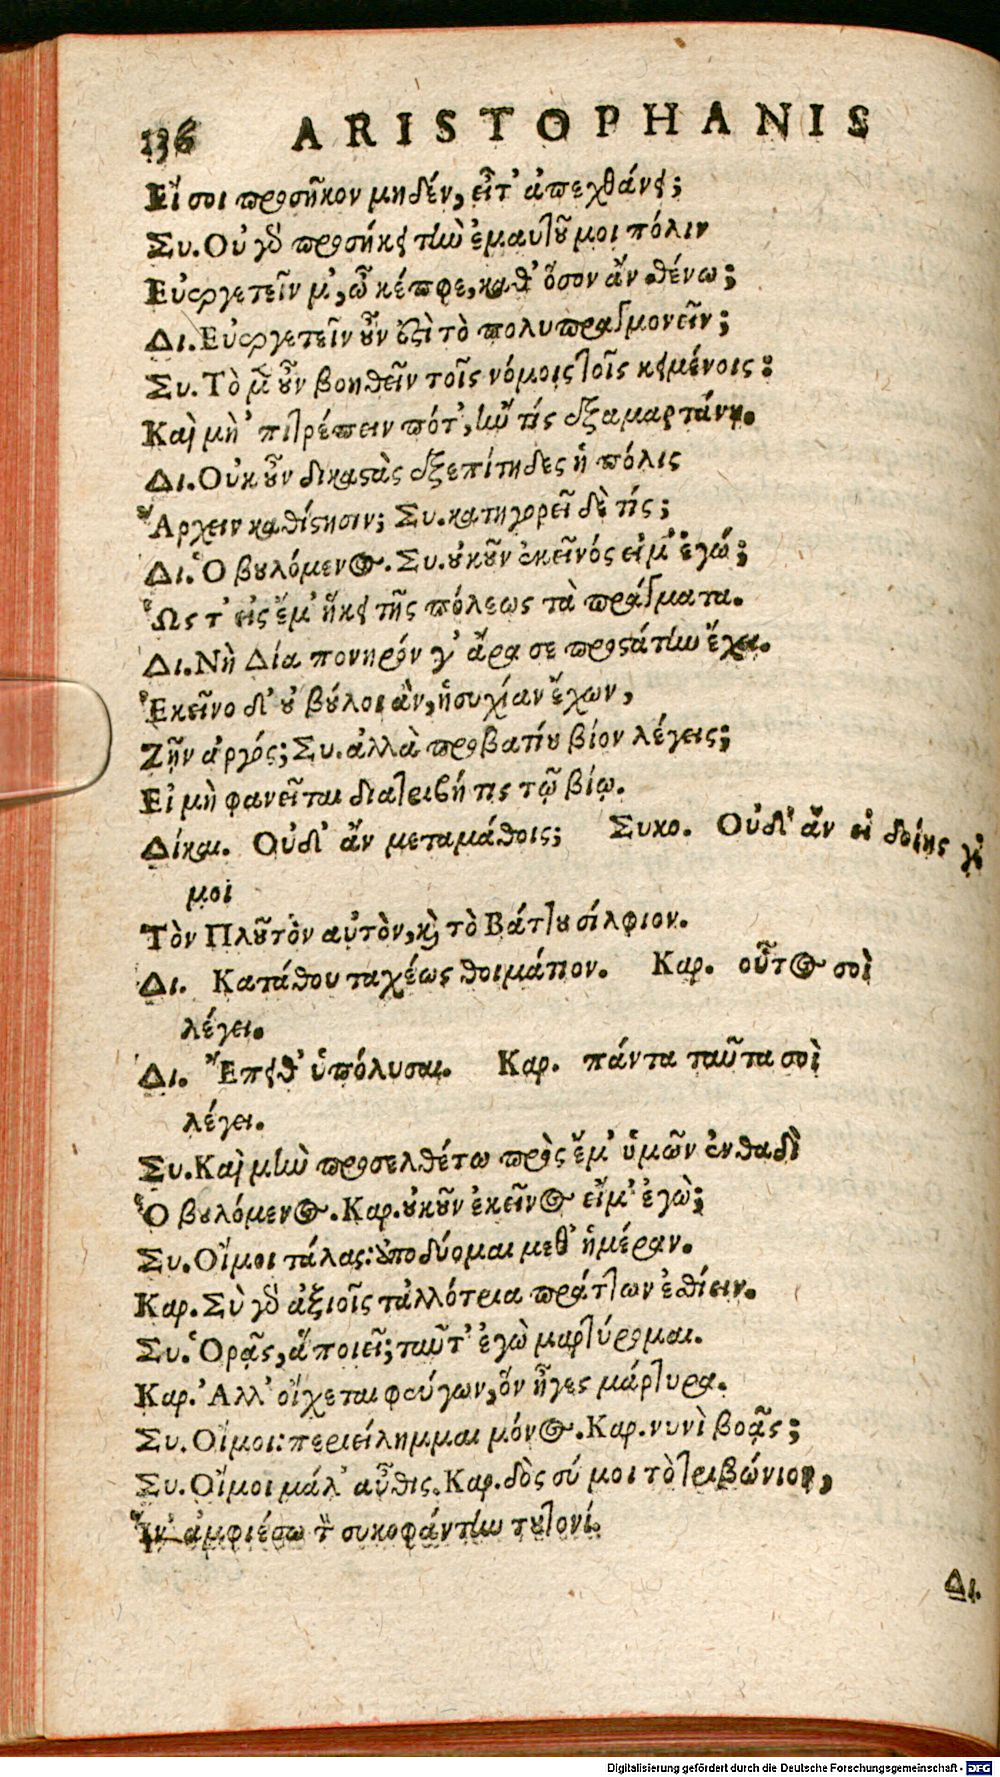 136 ARISTOPHANIS
Εἴ σοι προσῆκον μηδέν, εἶτ' ἀπεχθάνει;
Συ. Οὐ γὰρ προσήκει τὴν ἐμαυτοῦ μοι πόλιν
Εὐεργετεῖν μ', ὦ κέπφε, καθ' ὅσον ἂν σθένω;
Δι. Εὐεργετεῖν οὖν ἐστὶ τὸ πολυπραγμονεῖν;
Συ. Τὸ μὲν οὖν βοηθεῖν τοῖς νόμοις τοῖς κειμένοις:
Καὶ μὴ 'πιτρέπειν πότ', ἤν τίς ἐξαμαρτάνῃ.
Δι. Οὐκ οὖν δικαστὰς ἐξεπίτηδες ἡ πόλις
Ἄρχειν καθίστησιν; Συ. κατηγορεῖ δὲ τίς;
Δι. Ὁ βουλόμενος. Συ. οὐκοῦν ἐκεῖνός εἰμ' ἐγώ;
Ὥς τ' εἰς ἔμ' ἥκει τῆς πόλεως τὰ πράγματα.
Δι. Νὴ Δία πονηρόν γ' ἄρα σε προστάτην ἔχει.
Ἐκεῖνο δ' οὐ βούλοι ἂν, ἡσυχίαν ἔχων,
Ζῆν ἀργός; Συ. ἀλλὰ προβατίου βίον λέγεις;
Εἰ μὴ φανεῖται διατριβή τις τῷ βίῳ.
Δίκαι. Οὐδ' ἂν μεταμάθοις; Συκο. Οὐδ' ἂν εἰ δοίης γέ
μοι
Τὸν Πλοῦτὸν αὐτὸν, καὶ τὸ Βάττου σίλφιον.
Δι. Κατάθου ταχέως θοιμάτιον. Καρ. οὗτος σοὶ
λέγει.
Δι. Ἔπειθ' ὑπόλυσαι. Καρ. πάντα ταῦτα σοὶ
λέγει.
Συ. Καὶ μὴν προσελθέτω πρὸς ἔμ' ὑμῶν ἐνθαδὶ
Ὁ βουλόμενος. Καρ. οὐκοῦν ἐκεῖνος εἶμ' ἐγὼ;
Συ. Οἴμοι τάλας: ἀποδύομαι μεθ' ἡμέραν.
Καρ. Σὺ γὰρ ἀξιοῖς τἀλλότρια πράττων ἐσθίειν.
Συ. Ὁρᾷς, ἃ ποιεῖ; ταῦτ' ἐγὼ μαρτύρομαι.
Καρ. Ἀλλ' οἴχεται φεύγων, ὃν ἦγες μάρτυρα.
Συ. Οἴμοι: περιείλημμαι μόνος. Καρ. νυνὶ βοᾷς;
Συ. Οἴμοι μάλ' αὖθις. Καρ. δὸς σύ μοι τὸ τριβώνιον,
Ἵν' ἀμφιέσω τὸν συκοφάντην τουτονί.
Δι.
Digitalisierung gefördert durch die Deutsche Forschungsgemeinschaft - DFG